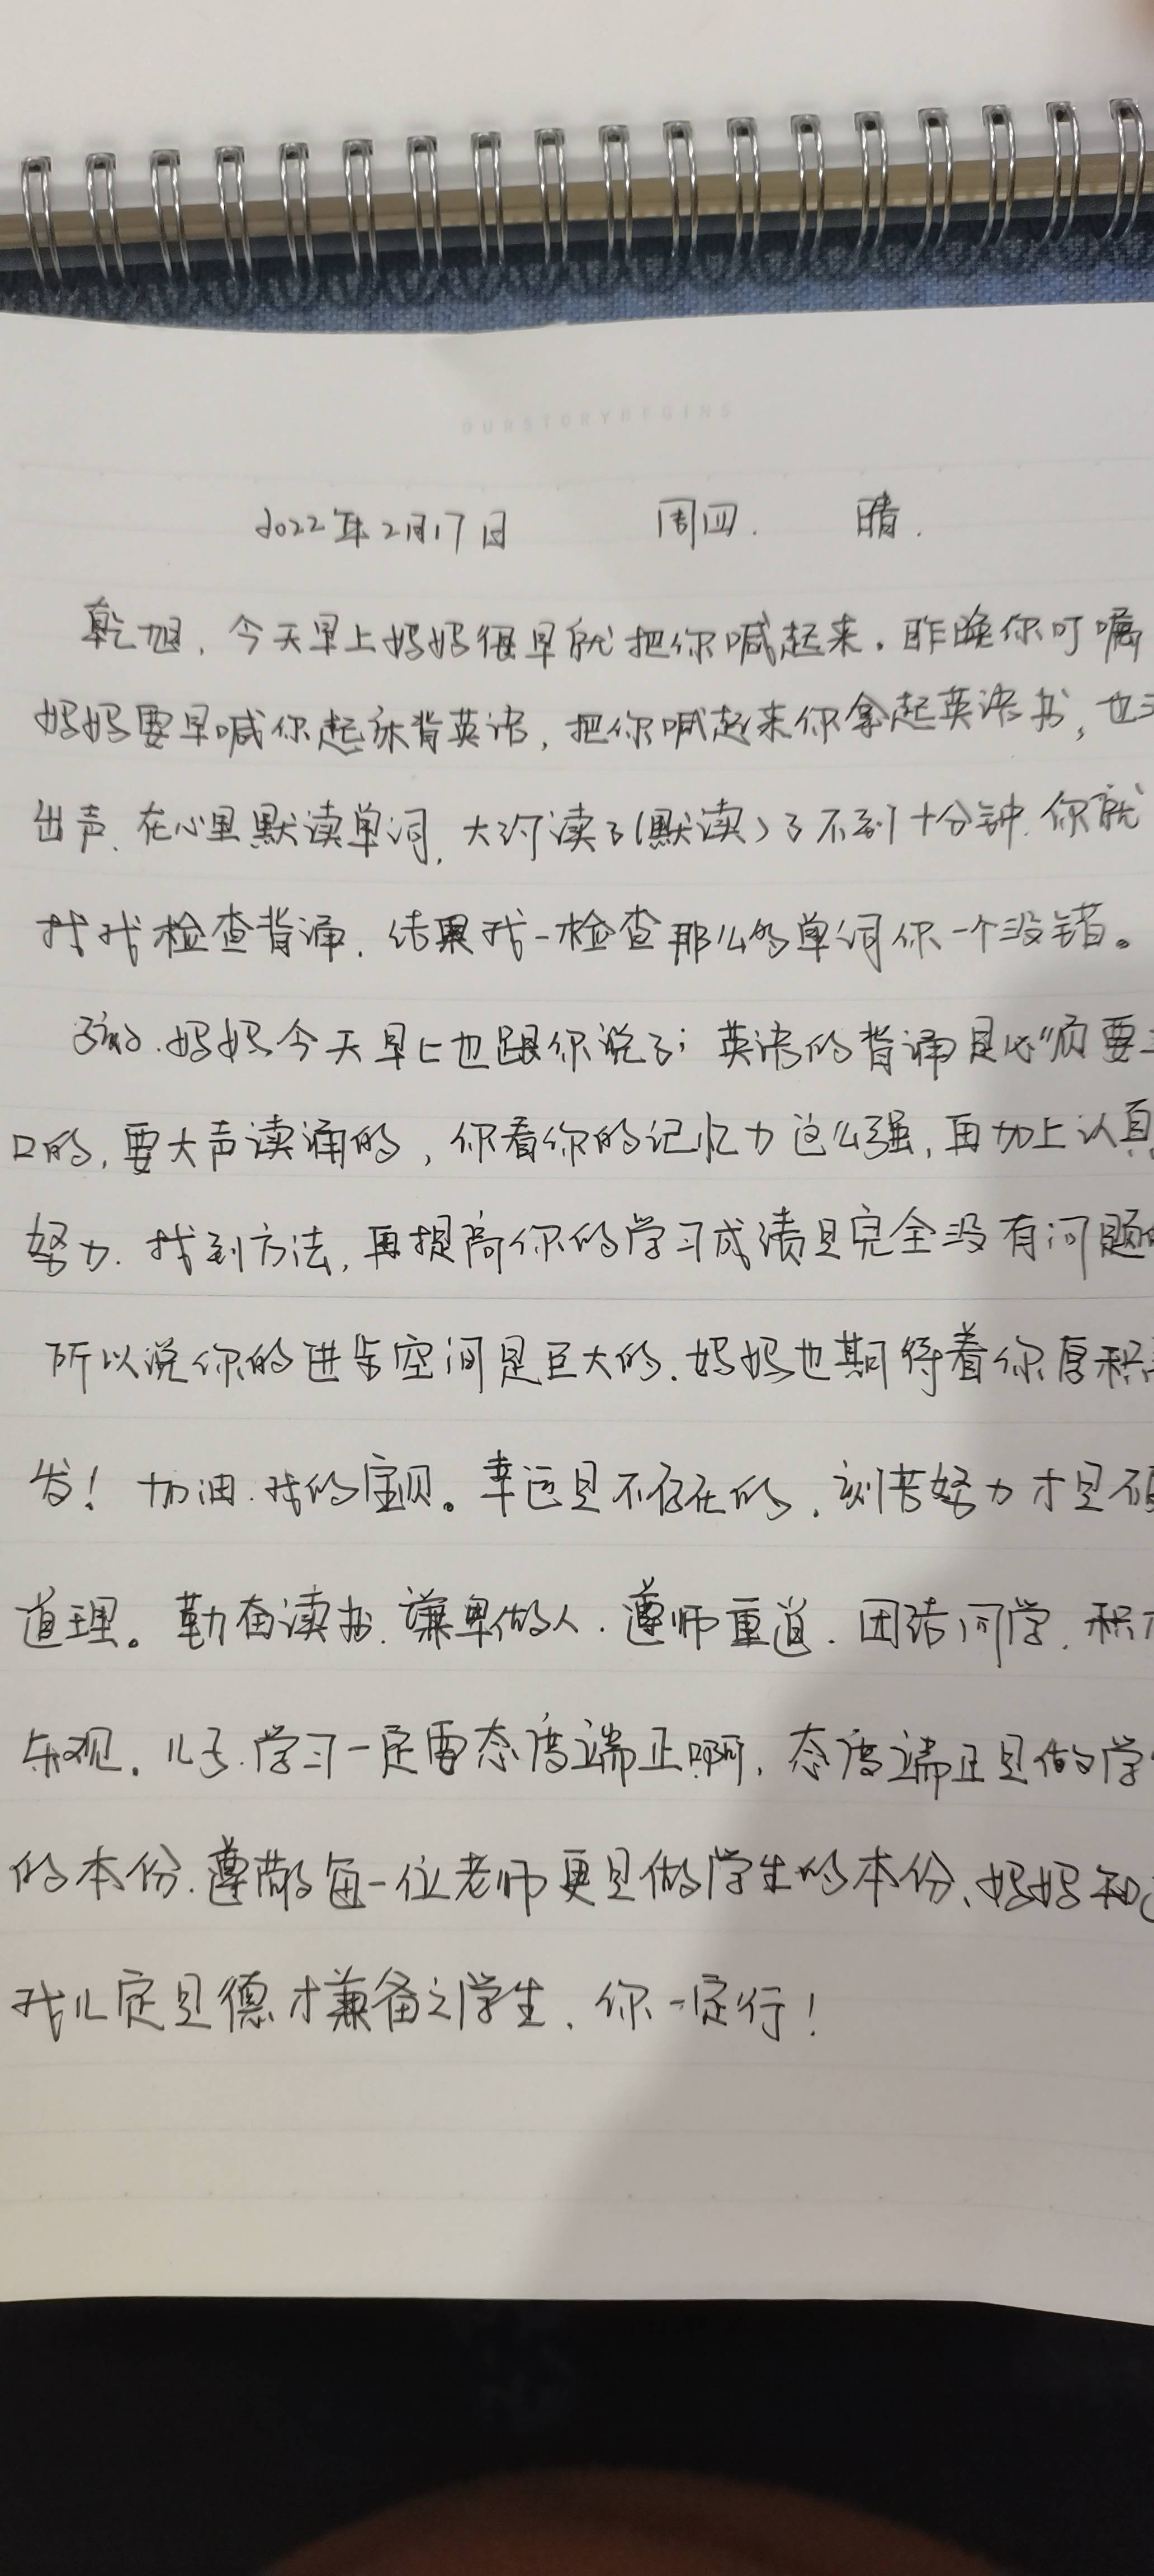 OURSTORYBEGINS
2022年2月17日 周四. 晴.
乾旭,今天早上妈妈很早就把你喊起来。昨晚你叮嘱
妈妈要早喊你起床背英语,把你喊起来你拿起英语书,也
出声.在心里默读单词,大约读了(默读)了不到十分钟.你就
找我检查背诵.结果我一检查那么的单词你一个没错。
孩子.妈妈今天早上也跟你说了;英语的背诵是必须要
口的,要大声读诵的,你看你的记忆力这么强,再加上认真
努力.找到方法,再提高你的学习成绩是完全没有问题的
所以说你的进步空间是巨大的.妈妈也期待着你厚积
发!加油.我的宝贝。幸运是不存在的.刻苦努力才是硬
道理。勤奋读书.谦卑做人.遵师重道.团结同学.积
乐观.儿子.学习一定要态度端正啊.态度端正是做学
的本份.尊敬每一位老师更是做学生的本份、妈妈知
我儿定是德才兼备之学生.你一定行!